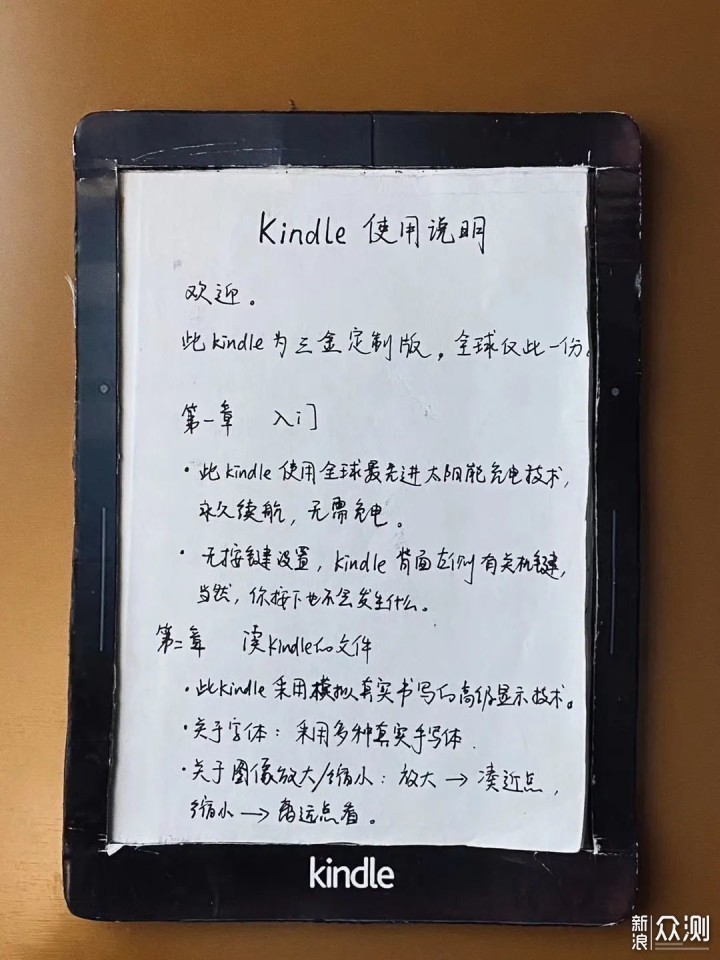 Kindle 使用说明
欢迎。
此kindle为三金定制版，全球仅此一份。
第一章 入门
·此kindle使用全球最先进太阳能充电技术，
永久续航，无需充电。
·无按键设置，kindle背面左侧有关机键，
当然，你按下也不会发生什么。
第二章 读kindle的文件
·此kindle采用模拟真实书写的高级显示技术。
·关于字体：采用多种真实手写体.
·关于图像放大/缩小：放大→凑近点，
缩小→离远点看。
kindle
新浪众测